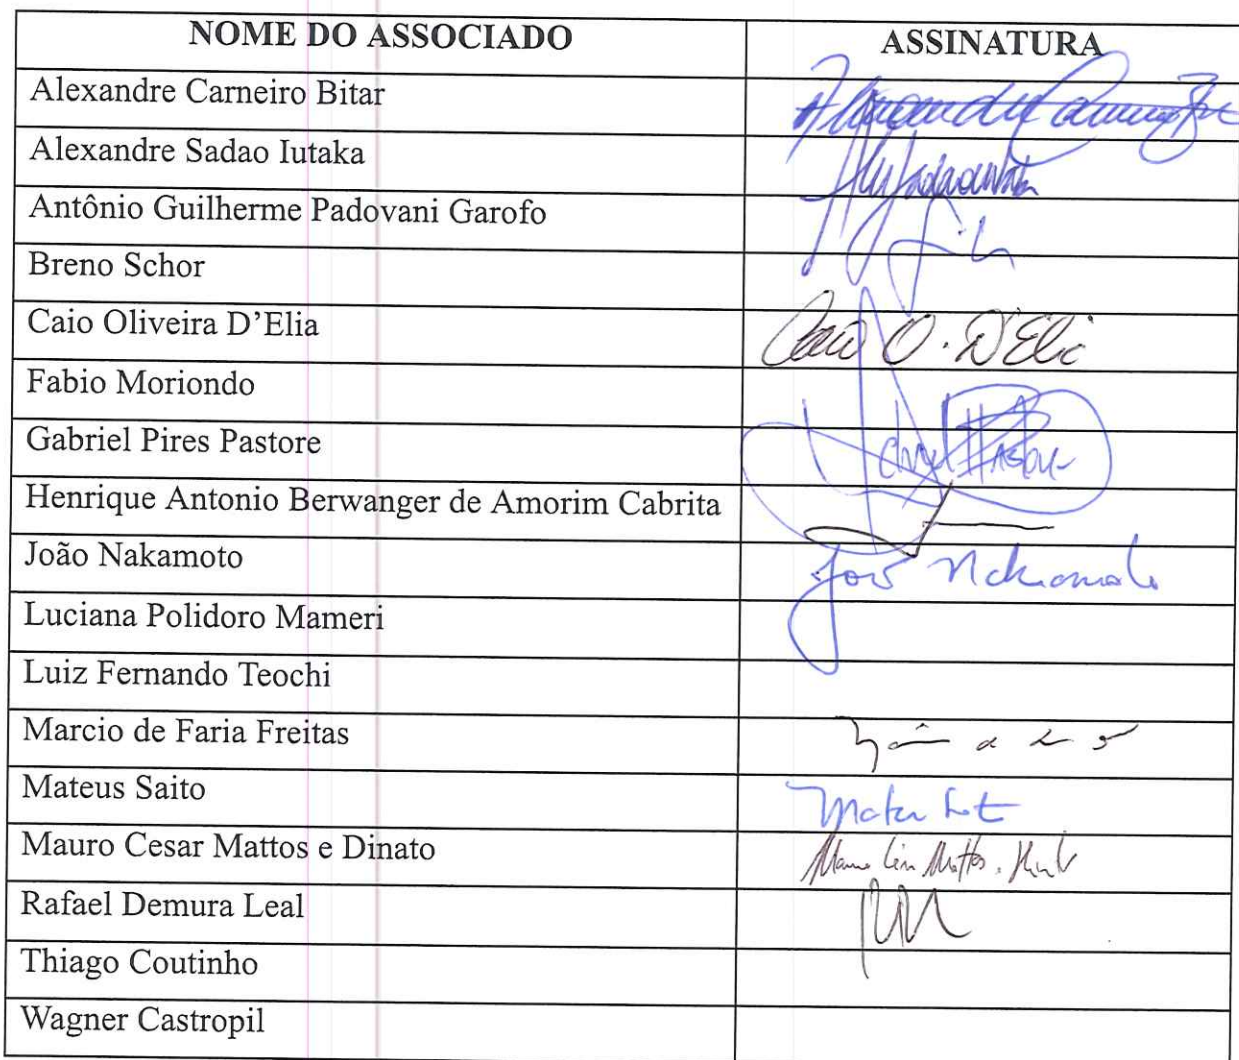 NOME DO ASSOCIADO ASSINATURA
Alexandre Carneiro Bitar
Alexandre Sadao Iutaka
Antônio Guilherme Padovani Garofo
Breno Schor
Caio Oliveira D'Elia Caio O. D'Elia
Fabio Moriondo
Gabriel Pires Pastore
Henrique Antonio Berwanger de Amorim Cabrita
João Nakamoto João Nakamoto
Luciana Polidoro Mameri
Luiz Fernando Teochi
Marcio de Faria Freitas
Mateus Saito
Mauro Cesar Mattos e Dinato
Rafael Demura Leal
Thiago Coutinho
Wagner Castropil